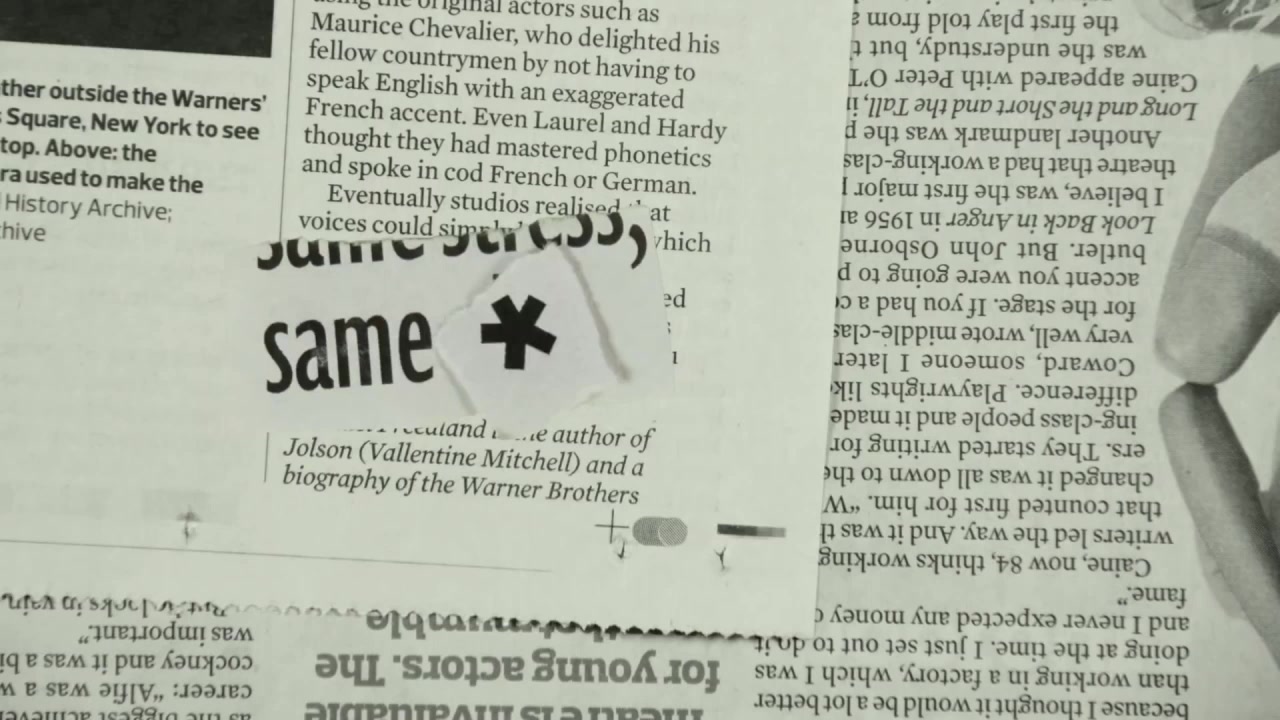 ther outside the Warners'
Square, New York to see
top. Above: the
ra used to make the
History Archive;
hive
using the original actors such as
Maurice Chevalier, who delighted his
fellow countrymen by not having to
speak English with an exaggerated
French accent. Even Laurel and Hardy
thought they had mastered phonetics
and spoke in cod French or German.
Eventually studios realised at
voices could which
ed
same stress,
same *
author of
Jolson (Vallentine Mitchell) and a
biography of the Warner Brothers
because I thought it would be a lot better
than working in a factory, which I was
doing at the time. I just set out to do it
and I never expected any money
fame."
Caine, now 84, thinks working
writers led the way. And it was
that counted first for him. "W
changed it was all down to the
ers. They started writing for
ing-class people and it made
difference. Playwrights
Coward, someone I later
very well, wrote middle-clas
for the stage. If you had a
accent you were going to
butler. But John Osborne
Look Back in Anger in 1956
I believe, was the first major
theatre that had a working-clas
Another landmark was the
Long and the Short and the Tall,
Caine appeared with Peter O'T
was the understudy, but
the first play told from
theatre is invaluable
for young actors. The
as the biggest
career: "Alfie was a
cockney and it was a
was important."